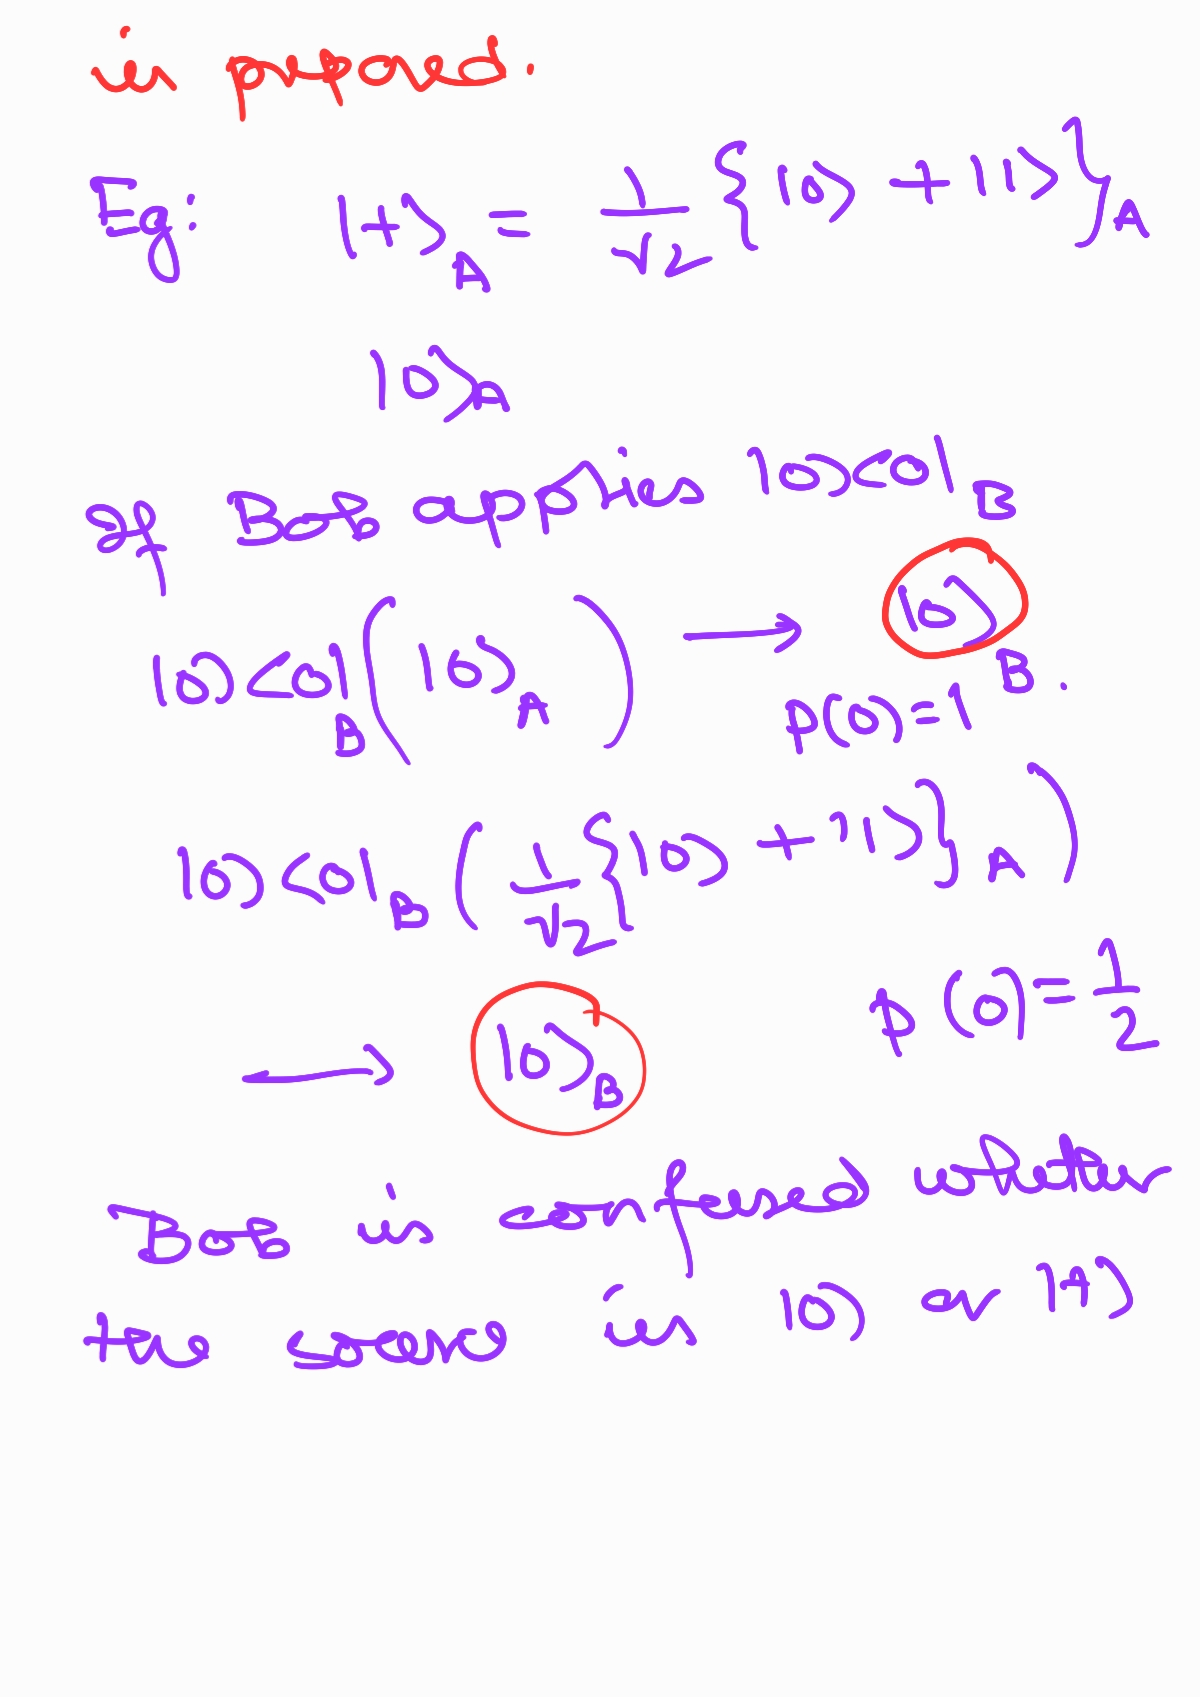 is prepared.
Eg: |+⟩_A = 1/√2 {|0⟩ + |1⟩}_A
|0⟩_A
If Bob applies |0⟩<0|_B
|0⟩<0|_B (|0⟩_A) ⟶ |0⟩_B.
p(0)=1
|0⟩<0|_B (1/√2 {|0⟩ + |1⟩}_A)
⟶ |0⟩_B p(0)=1/2
Bob is confused whether
the source is |0⟩ or |+⟩